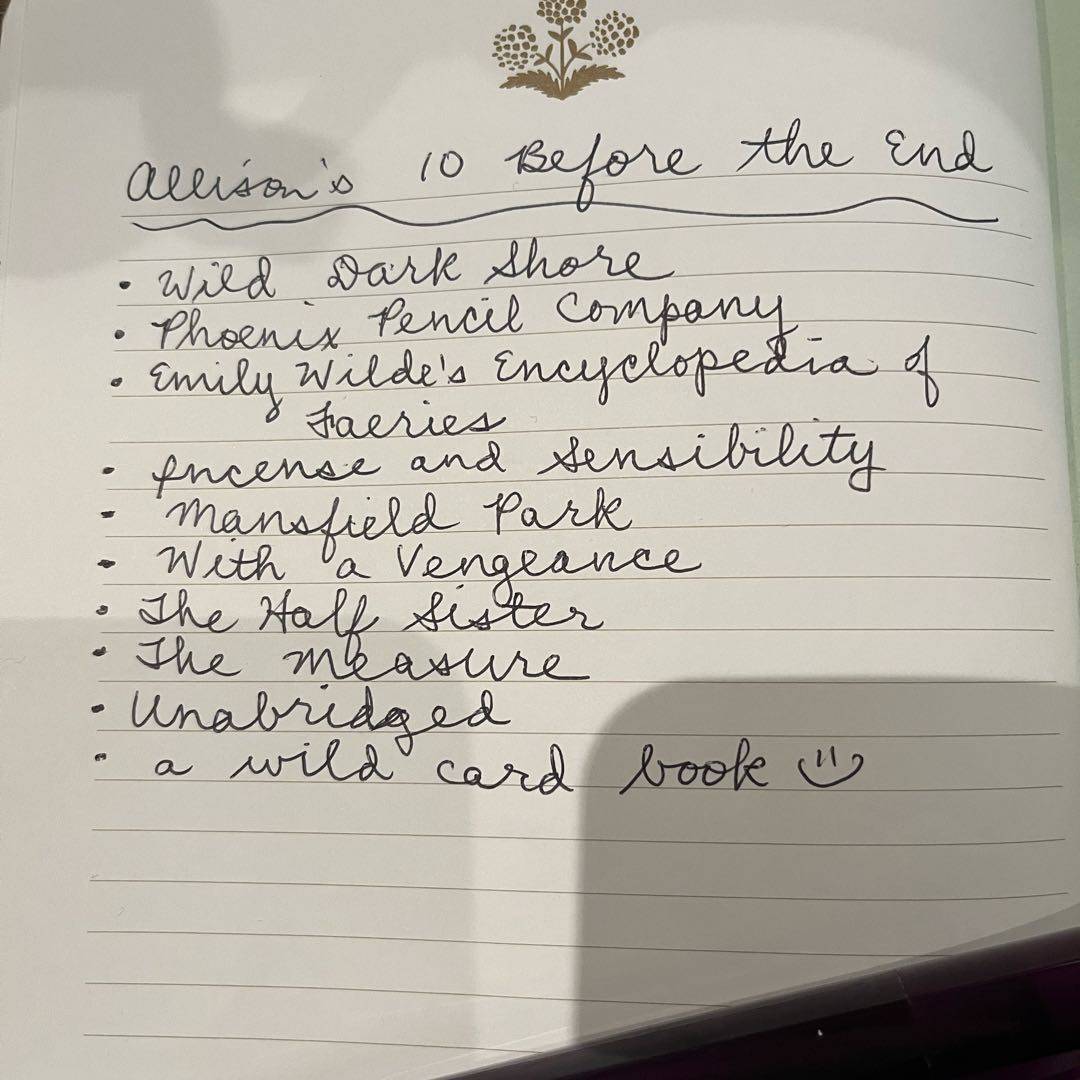 Allison's 10 Before the End
• Wild Dark Shore
• Phoenix Pencil Company
• Emily Wilde's Encyclopedia of
Faeries
• Incense and Sensibility
- Mansfield Park
- With a Vengeance
• The Half Sister
• The Measure
• Unabridged
• a wild card book :)